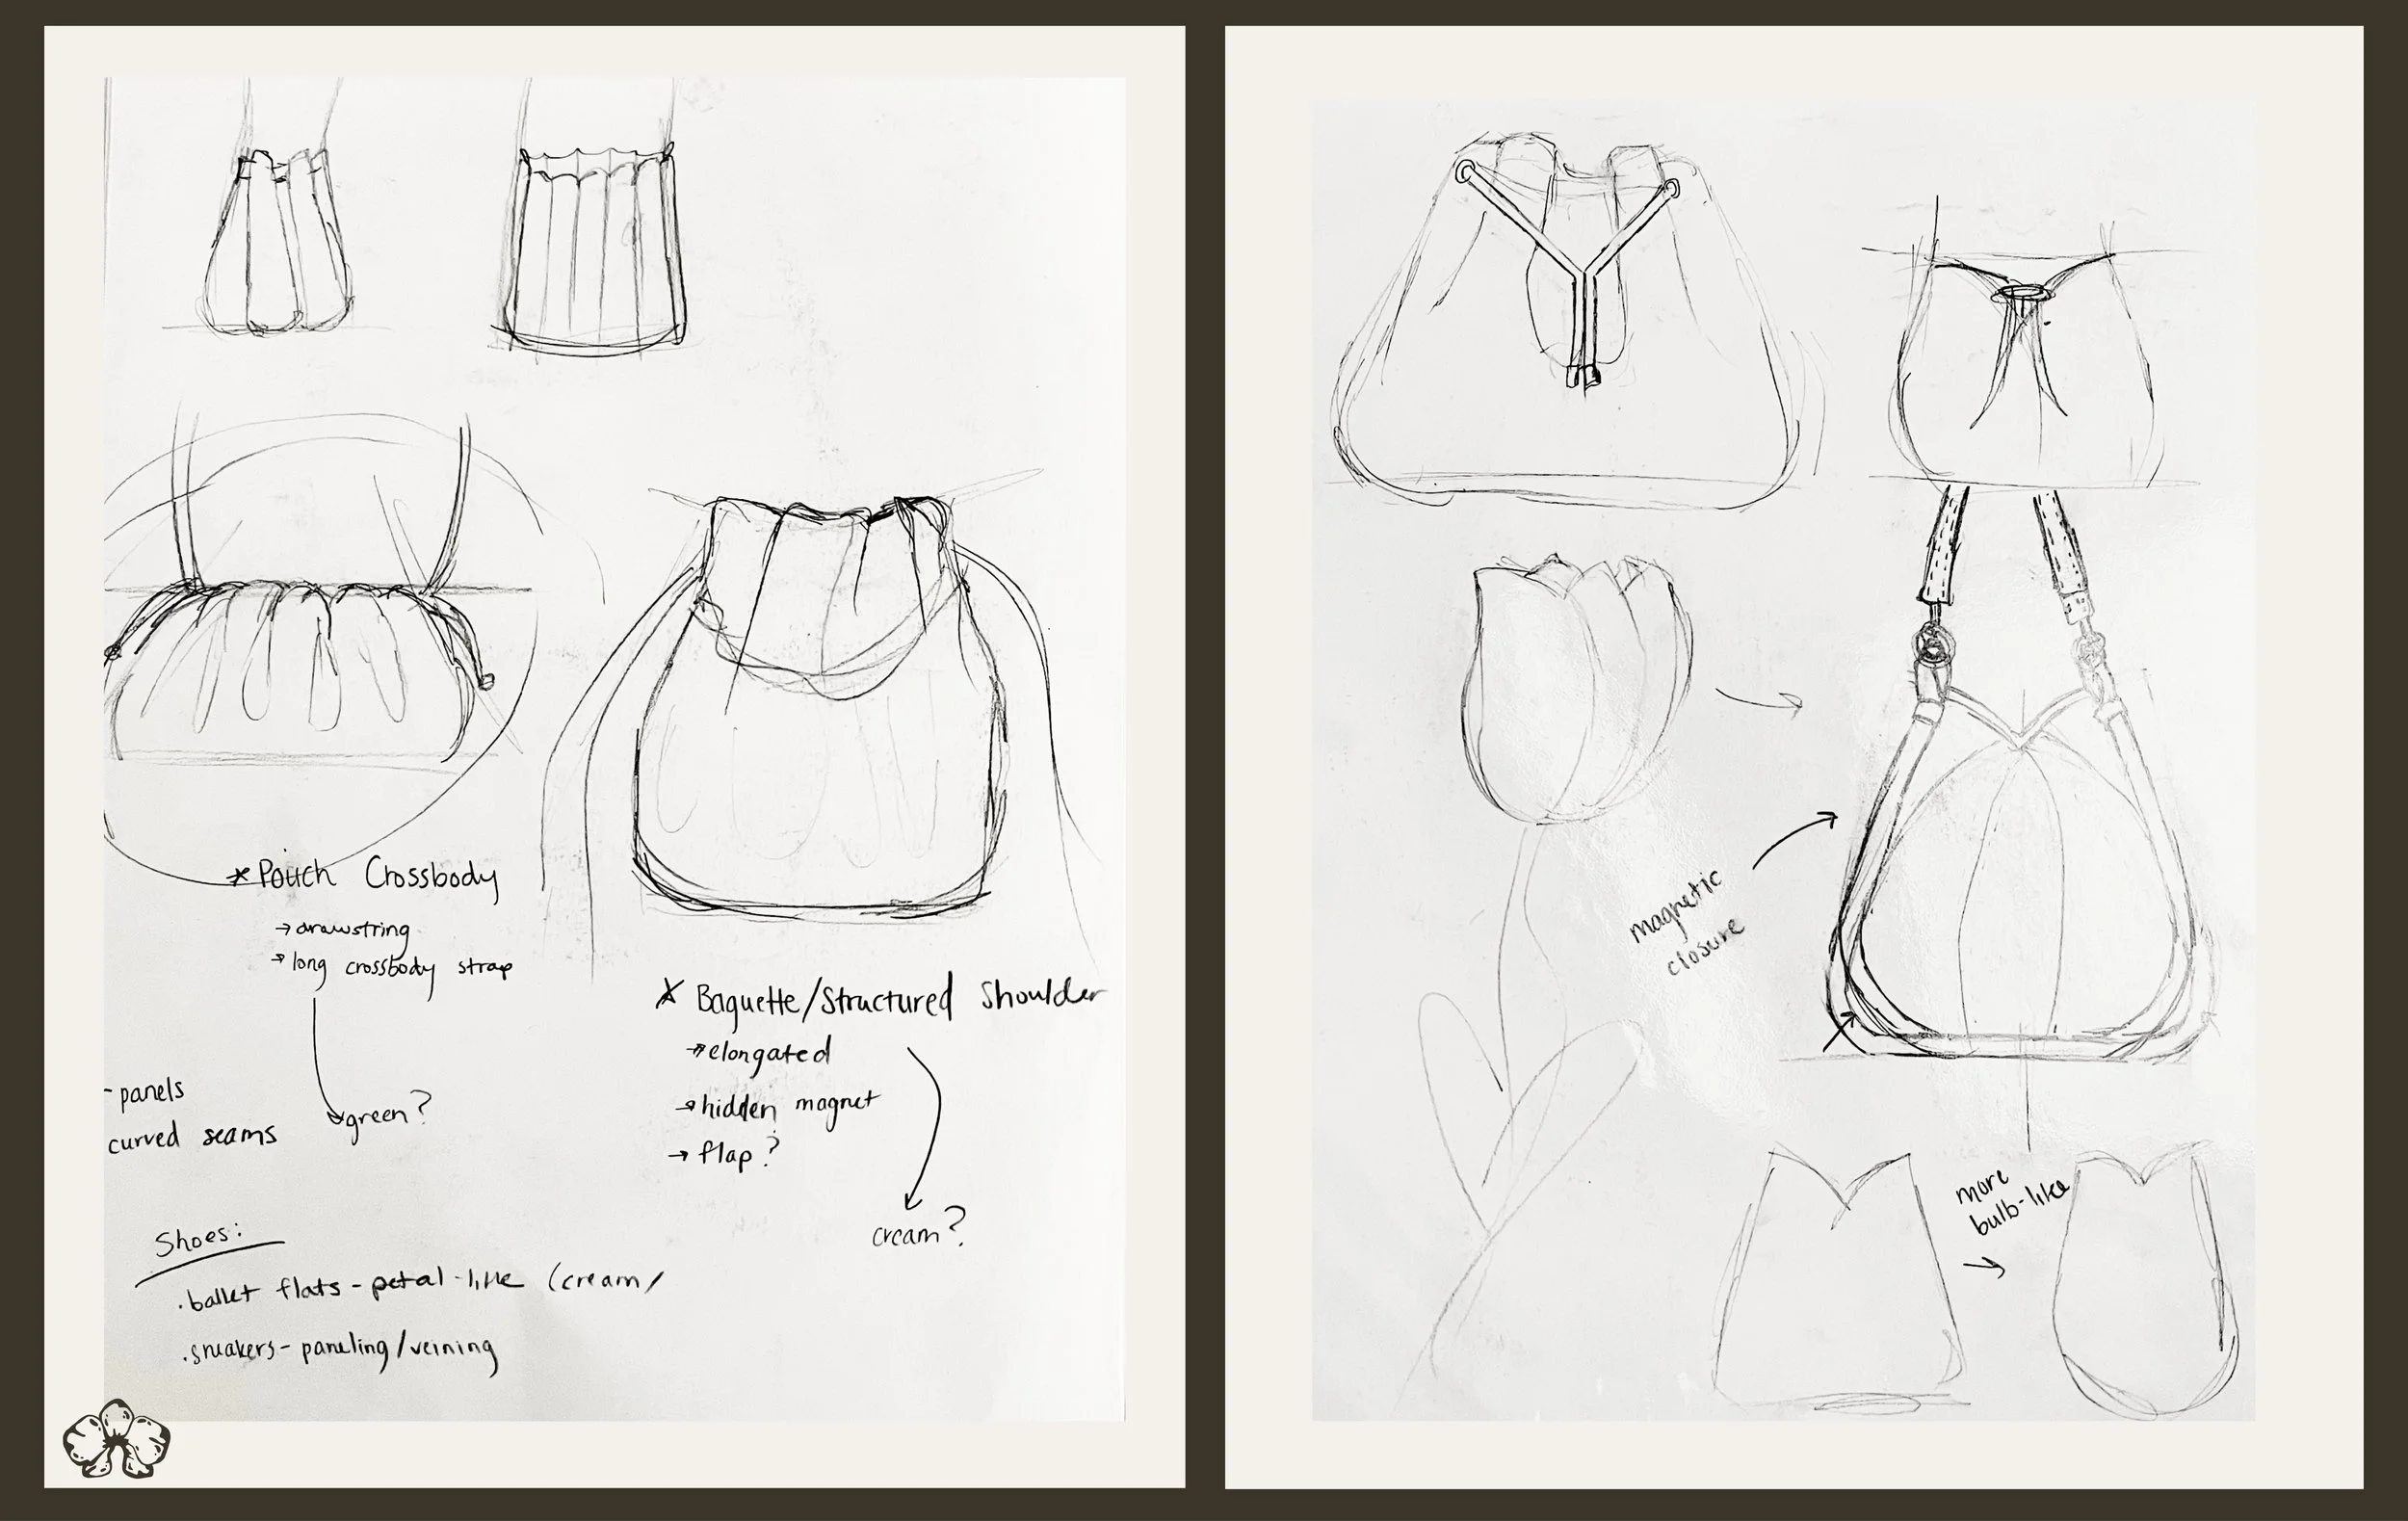 * Pouch Crossbody
→ drawstring
→ long crossbody strap
green?
- panels
curved seams
* Baguette/Structured Shoulder
→ elongated
→ hidden magnet
→ flap?
cream?
Shoes:
. ballet flats - petal-like (cream/
. sneakers - paneling/veining
magnetic
closure
more
bulb-like